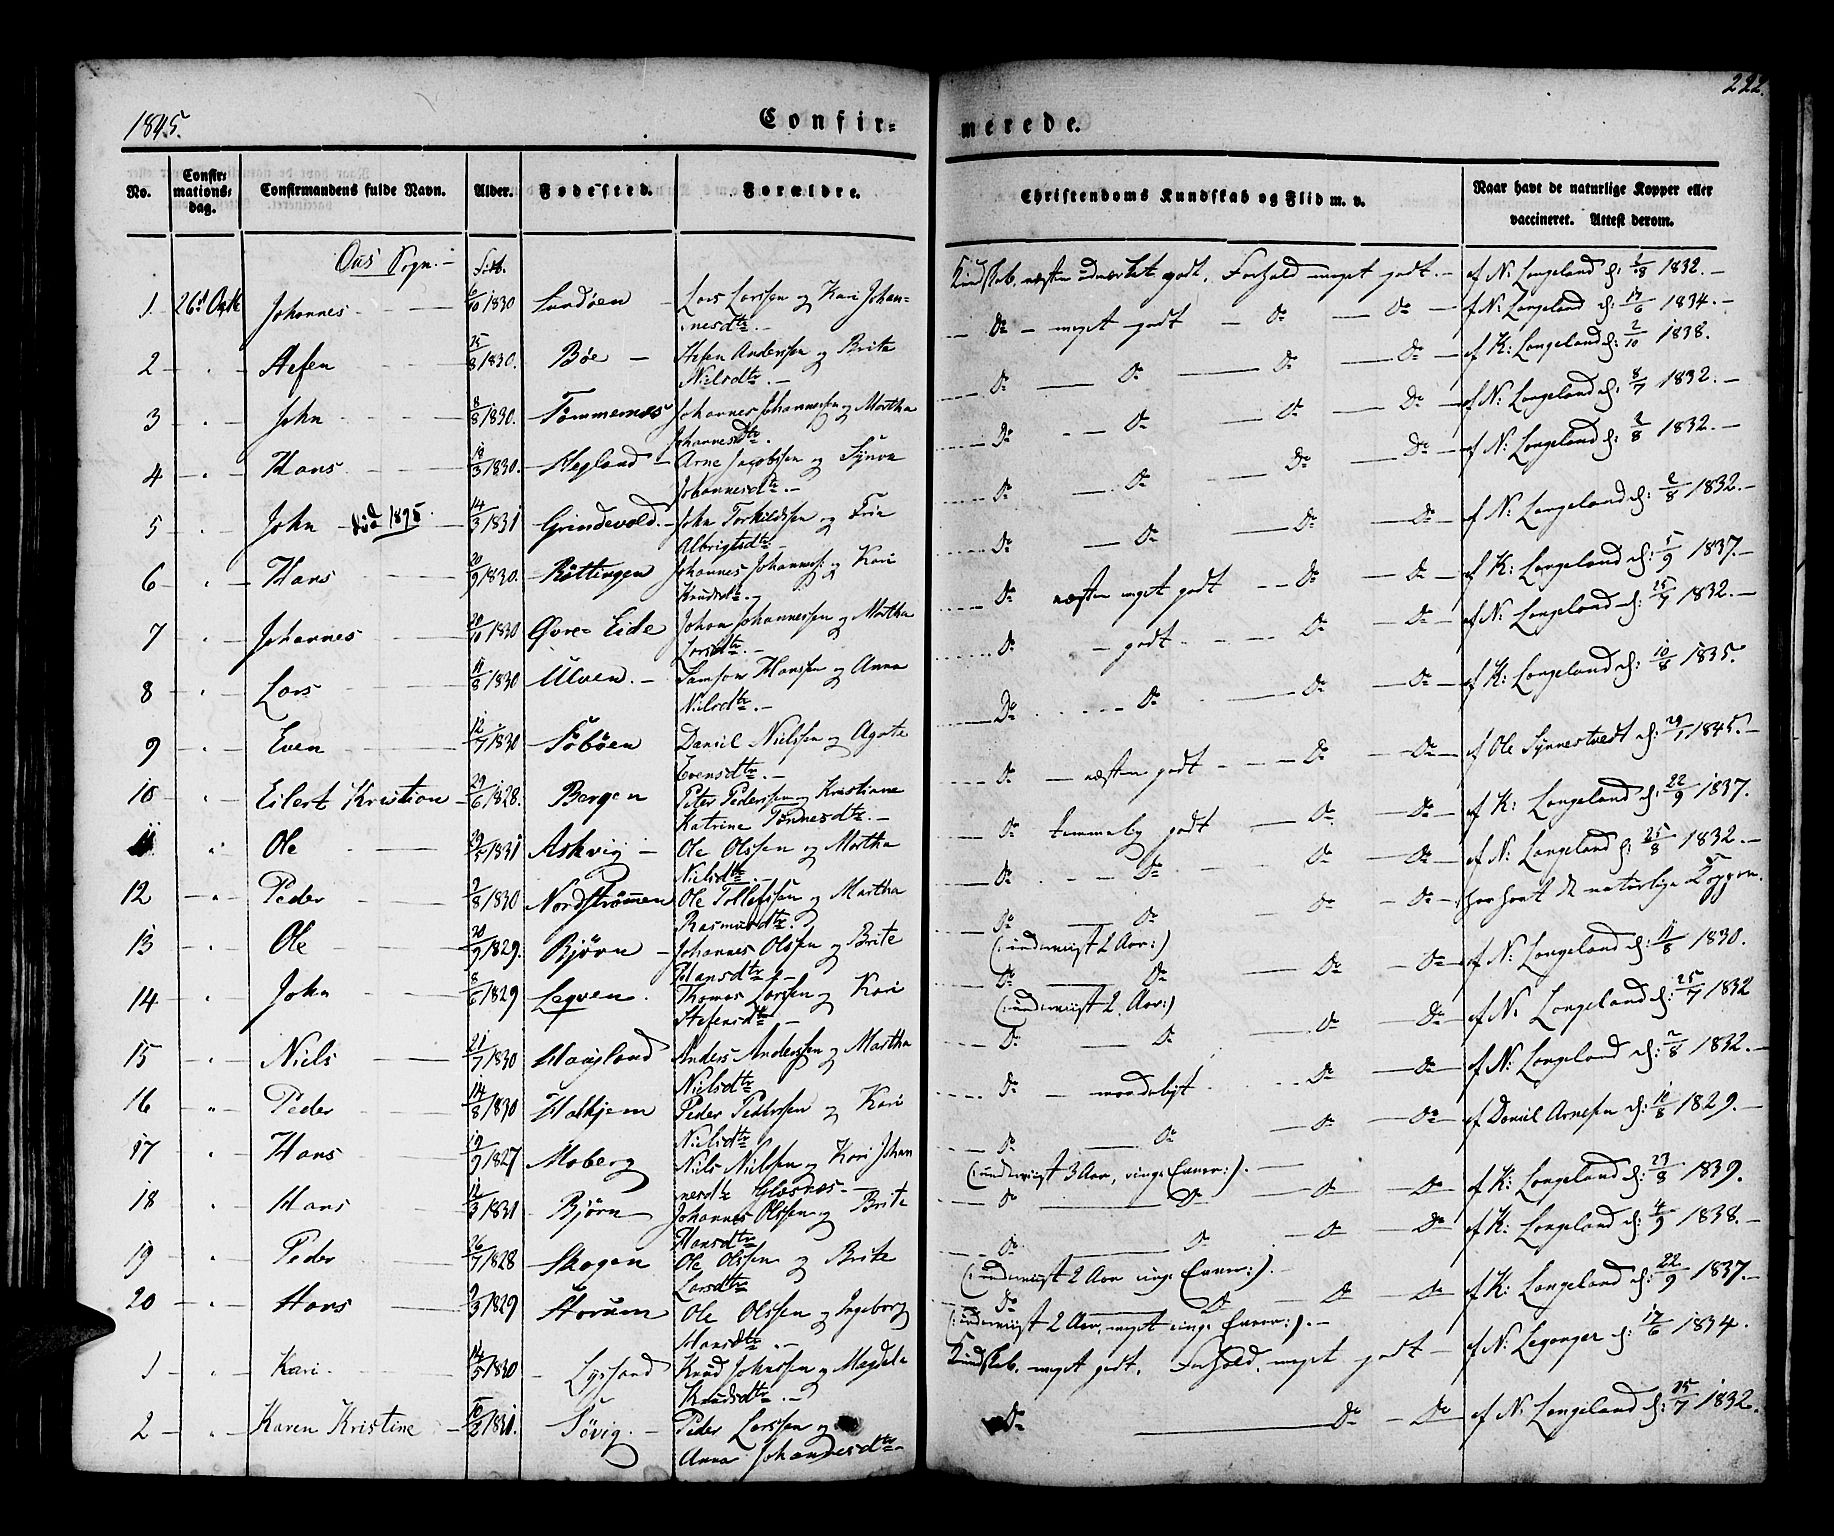 222.
1845.
Confir=
merede.
No.
Confir-
mations-
dag.
Confirmandens fulde Navn.
Alder.
Fødested.
Forældre.
Christendoms Kundskab og Flid m. v.
Naar havt de naturlige Kopper eller
vaccineret. Attest derom.
Ous Sogn.-
Kundskab, næsten udmærket godt. Forhold meget godt.- af N: Langeland d: 1832.-
1 26d Octb Johannes 6/10 1830 Lars Larssen og Kari Johan=
nesdtr.-
Do - meget godt - Do - Do - af N: Langeland d: 17/6 1834.-
2 - " - Stefen 25/8 1830. Bøe - Stefen Anderssen og Brite
Nielsdtr.-
Do - Do - Do - Do af K: Langeland d: 2/10 1838.
3 - " - John 8/8 1830. Tømmernæs Johannes Johannessen og Martha
Johannesdtr.
Do - Do - Do - Do - af N: Langeland d: 8/7 1832.-
4 - " - Hans 18/3 1830. Hegland - Arne Jacobssen og Synva
Johannesdtr.-
Do - Do - Do - Do - af N: Langeland d: 2/8 1832.-
5 - " - John - død 1895. 14/3 1831 Grindevold.- John Torkildssen og
Albrigtsdtr.-
Do - Do - Do - Do - af N: Langeland d: 2/8 1832.-
6 - " - Hans 20/9 1830. Røttingen Johannes Johanness: og Kari
Knudsdtr.-
Do næsten meget godt - Do - Do - af K: Langeland d: 5/9 1837.-
7 - " - Johannes 20/10 1830 Øvre= Eide Johan Johannessen og Martha
Larsdtr.-
Do - godt - Do - Do - af N: Langeland d: 25/7 1832.-
8 - " - Lars 11/8 1830 Ulven.- Samson Hanssen og Anna
Nilsdtr.-
Do - Do - Do - Do - af K: Langeland d: 10/8 1835.
9 - " - Even 12/7 1830 Søbøen Daniel Nielssen og Agate
Evensdtr.-
Do - næsten godt - Do - Do - af Ole Synnestvedt d: 29/1 1845.-
10 - " - Eilert Kristian 29/6 1828. Bergen Peter Pederssen og Kristiane
Katrine Tønnesdtr.-
Do temmelig godt - Do - Do - af K: Langeland d: 22/9 1837.
11 - " - Ole 29/5 1831 Askvig - Ole Olssen og Martha
Nielsdtr.
Do - Do - Do - Do - af N: Langeland d: 25/8 1832.-
12 - " - Peder 9/8 1830 Nordstrømen Ole Tollefssen og Martha
Rasmusdtr.
Do - Do - Do - Do - har havt de naturlige Kopper.
13 - " - Ole 20/9 1829. Bjørn - Johannes Olssen og Brite
Hansdtr.-
(: underviist 2 Aar:)
Do - Do - Do - Do - af N: Langeland d: 11/8 1830.
14 - " - John 8/6 1829 Legven. Thomas Larssen og Kari
Stefensdtr.-
(: underviist 2 Aar:)
Do - Do - Do - Do - af N: Langeland d: 25/7 1832
15 - " - Niels 21/7 1830 Haugland Anders Anderssen og Martha
Nielsdtr
Do - maadeligt - Do - Do - af N: Langeland d: 7/8 1832.-
16 - " - Peder 14/8 1830 Halhjem Peder Pederssen og Kari
Nielsdtr
Do - Do - Do - Do - af Daniel Arnesen d: 11/8 1829.-
17 - " - Hans 19/9 1827 Moberg Niels Nielssen og Kari Johan
nesdtr Glæsnæs.-
(: underviist 3 Aar, ringe Evner:).-
Do - Do - Do - Do - af K: Langeland d: 23/8 1839.
18 - " - Hans 12/3 1831 Bjørn Johannes Olssen og Brite
Hansdtr
Do - Do - Do - Do af K: Langeland d: 4/9 1838.-
19 - " - Peder 26/7 1828 Skogen Ole Olssen og Brite
Larsdtr
(: underviist 2 Aar ringe Evner:).-
Do - Do - Do - Do - af K: Langeland d: 22/9 1837.-
20 - " - Hans 2/3 1829 Storum Ole Olssen og Ingeborg
Hansdtr.-
(: underviist 2 Aar, meget ringe Evner:).-
1 - " - Kari 14/5 1830 - Lyssand Knud Johnssen og Magdela
Knudsdtr.-
Kundskab. meget godt. Forhold. meget godt - af N: Leganger d: 17/6 1834.
2 - " - Karen Kristine - 10/2 1831. Søvig.- Peder Larssen og
Anna Johannesdtr-
Do - Do - Do af N: Langeland d: 25/7 1832.